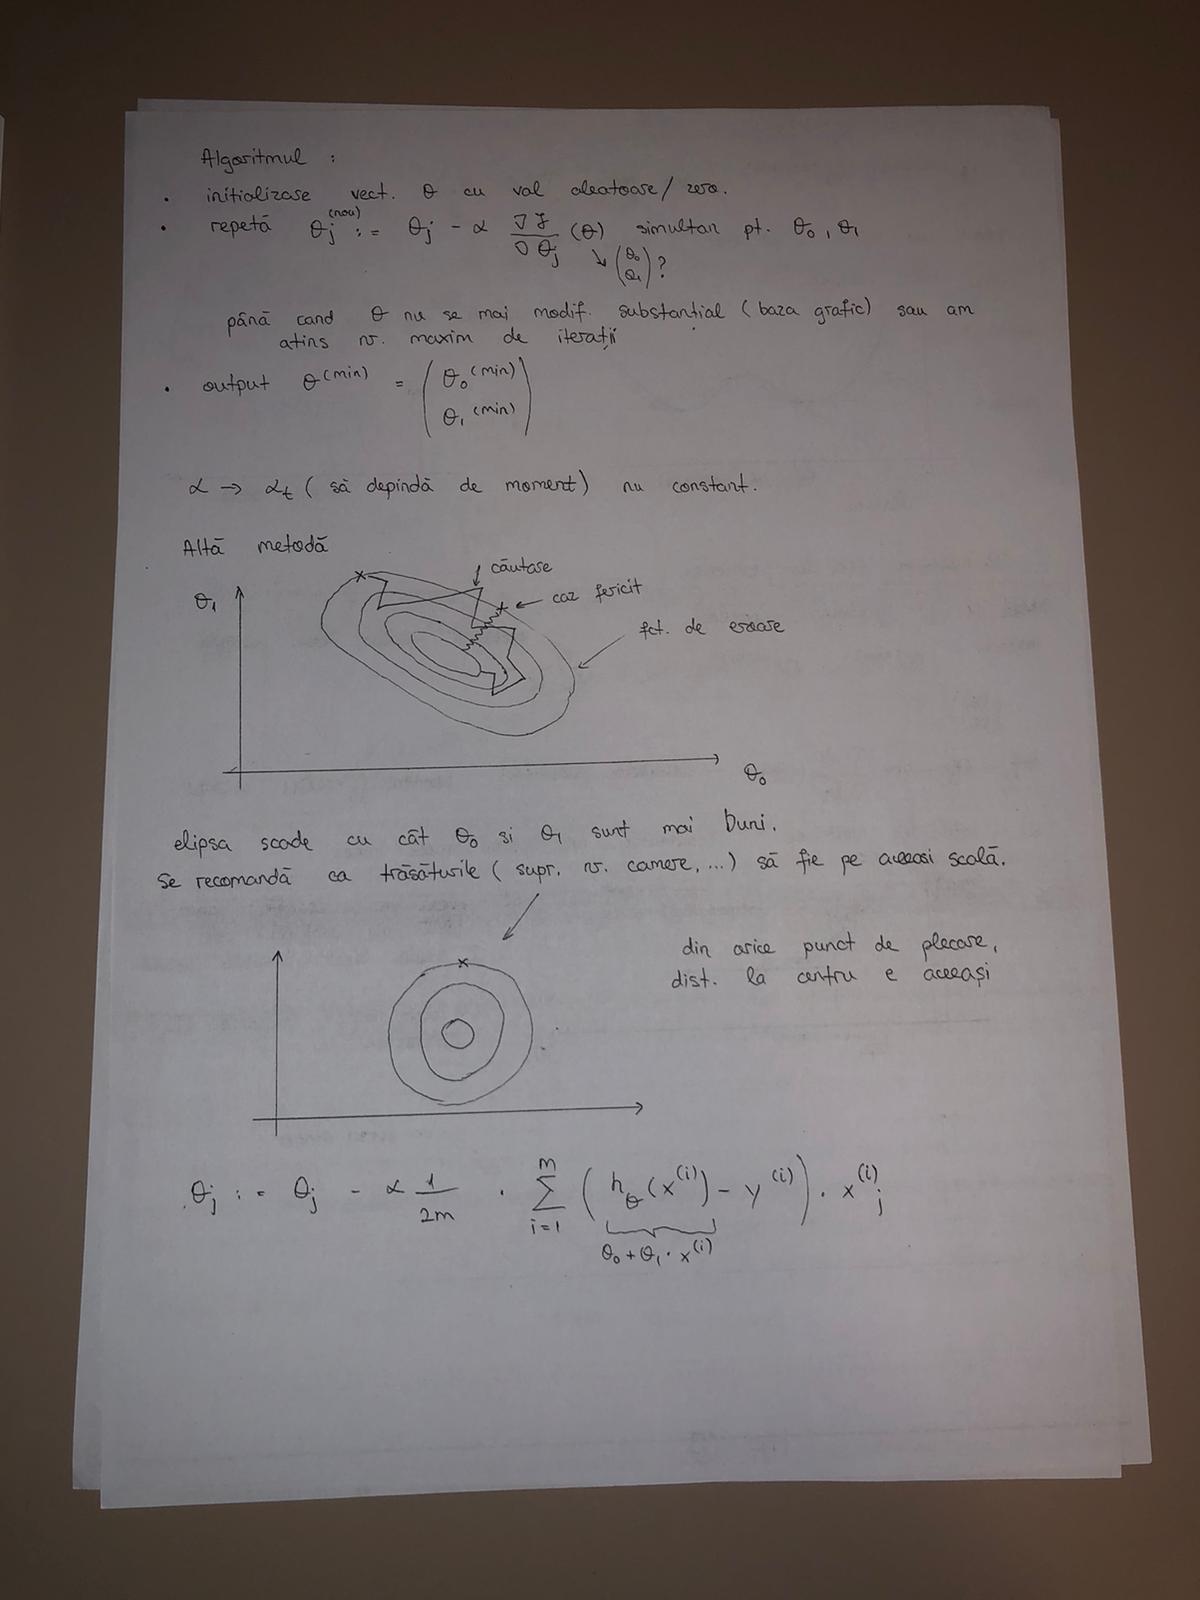 Algoritmul :
• initializare vect. θ cu val aleatoare/ zero.
• repetă θj (nou) := θj - α ∇J / ∇θj (θ) simultan pt. θ0, θ1
↘ (θ0 θ1) ?
până cand θ nu se mai modif. substantial ( baza grafic) sau am
atins nr. maxim de iterații
• output θ(min) = ( θ0(min) θ1(min) )
α → αt ( să depindă de moment) nu constant.
Altă metodă
căutare
caz fericit
fct. de eroare
θ1
θ0
elipsa scade cu cât θ0 si θ1 sunt mai buni.
Se recomandă ca trăsăturile ( supr. nr. camere, ...) să fie pe aceeasi scală.
din orice punct de plecare,
dist. la centru e aceeași
θj := θj - α 1/2m · Σ i=1 m ( hθ(x(i)) - y(i) ) · xj(i)
θ0 + θ1 · x(i)